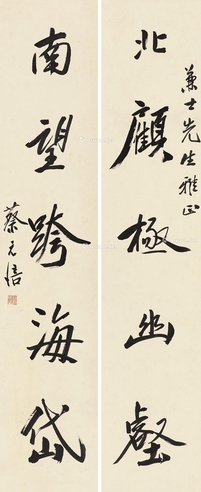 兼士先生雅正
北顧極幽壑
南望跨海岱
蔡元培